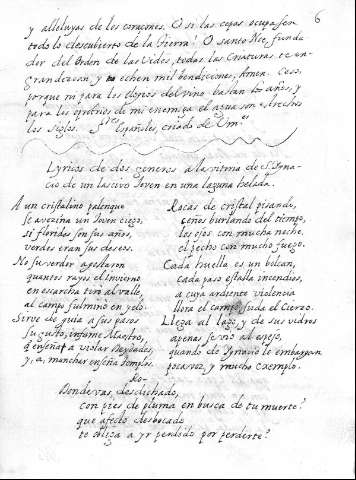 6
y alleluyas de los coraçones. O si las cepas ocupassen
todo lo descubierto de la tierra! O santo Noe, funda
dor del Orden de las Vides, todas las Criaturas te en-
grandezcan, y te echen mil bendiciones, Amen. Ceso,
porque ni para los elogios del vino bastan los años, y
para los oprobrios de mi enemiga el agua son estrechos
los siglos.
Españoles, criado de
Lyricos de dos generos a la vitoria de S. Igna-
cio de un lascivo Joven en una laguna helada.
A un cristalino palenque
se avezina un Joven ciego,
si floridos son sus años,
verdes eran sus deseos.
No su verdor agostaron
quantos rayos el invierno
en escarcha tirò al valle,
al campo fulminò en yelo.
Sirve de guia a sus pasos
su gusto, infame Maestro,
q enseña a violar Deydades,
y, a, manchar enseña Templos.
Rocas de cristal pisando,
ceños burlando del tiempo,
los ojos con mucha noche,
el pecho con mucho fuego.
Cada huella es un bolcan,
cada paso estalla incendios,
a cuya ardiente violencia
llora el campo, suda el Cierzo.
Llega al lago, y de sus vidros
apenas se viò al espejo,
quando de Ignacio le embarazan
poca voz, y mucho exemplo.
Ro-
Donde vas, desdichado,
con pies de pluma en busca de tu muerte?
que afecto desbocado
te obliga a yr perdido por perderte?